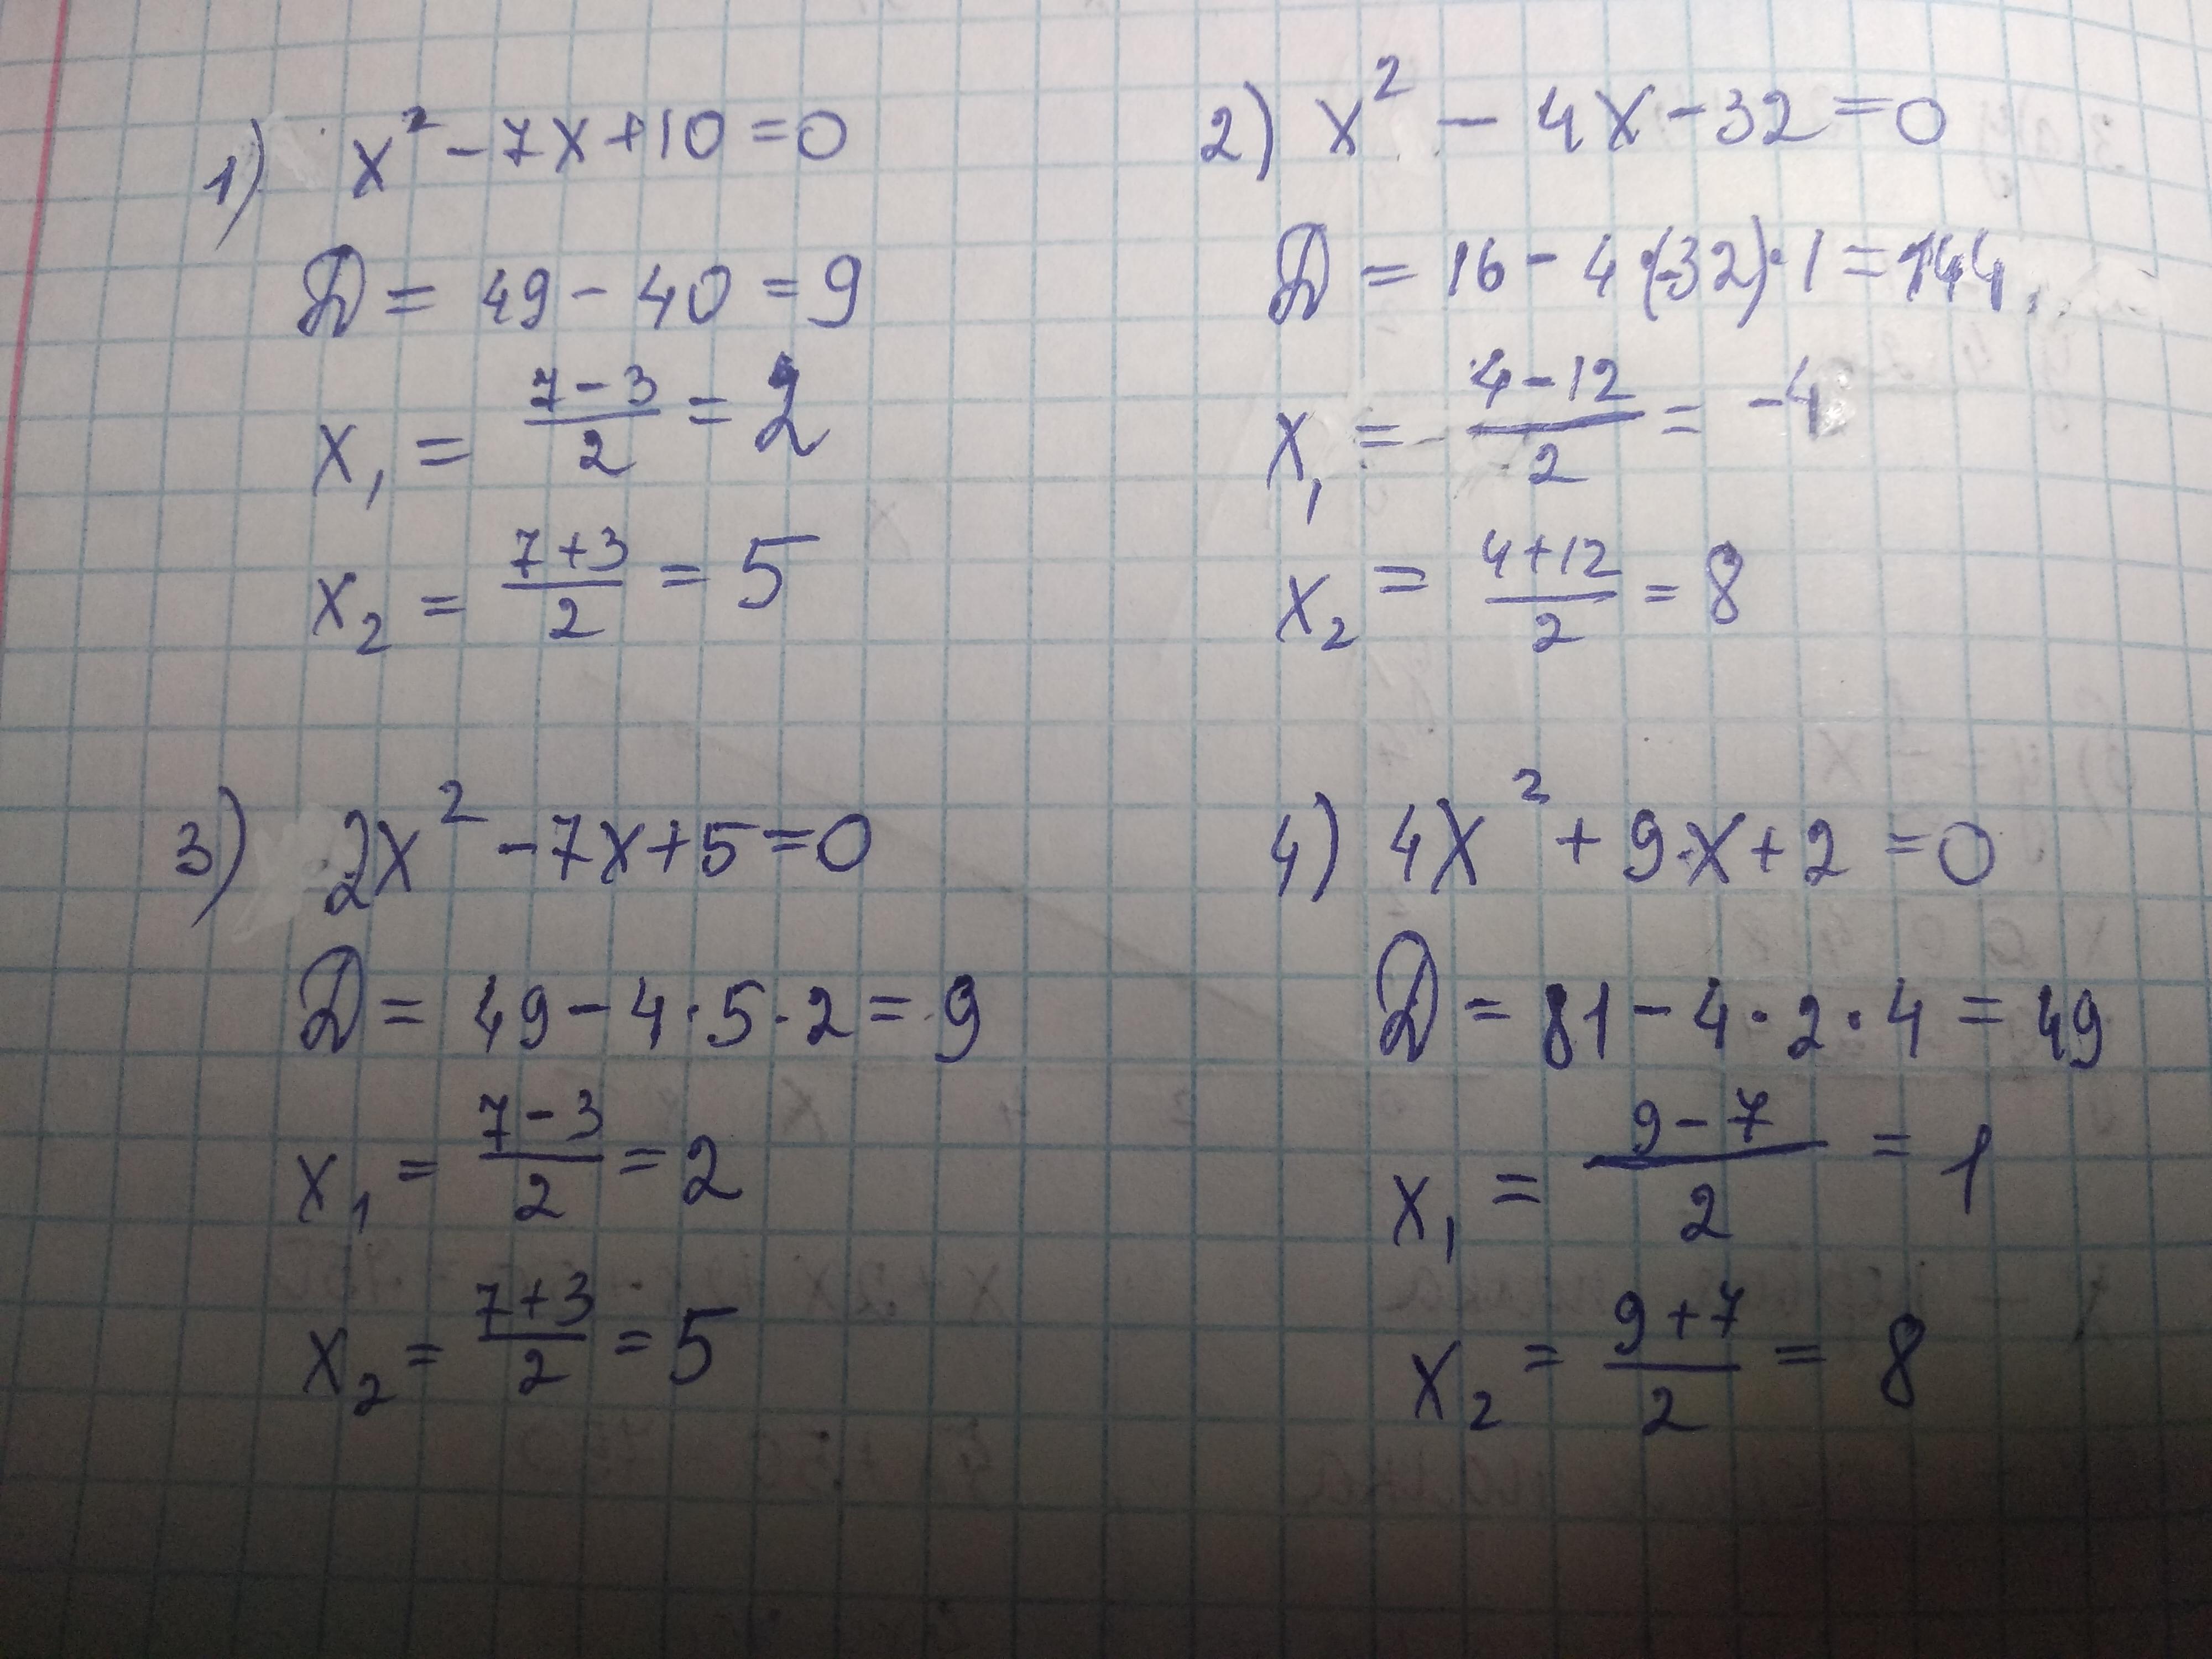 1) x² - 7x + 10 = 0
D = 49 - 40 = 9
x₁ = (7 - 3)/2 = 2
x₂ = (7 + 3)/2 = 5
2) x² - 4x - 32 = 0
D = 16 - 4·(-32)·1 = 144
x₁ = (4 - 12)/2 = -4
x₂ = (4 + 12)/2 = 8
3) 2x² - 7x + 5 = 0
D = 49 - 4·5·2 = 9
x₁ = (7 - 3)/2 = 2
x₂ = (7 + 3)/2 = 5
4) 4x² + 9x + 2 = 0
D = 81 - 4·2·4 = 49
x₁ = (9 - 7)/2 = 1
x₂ = (9 + 7)/2 = 8